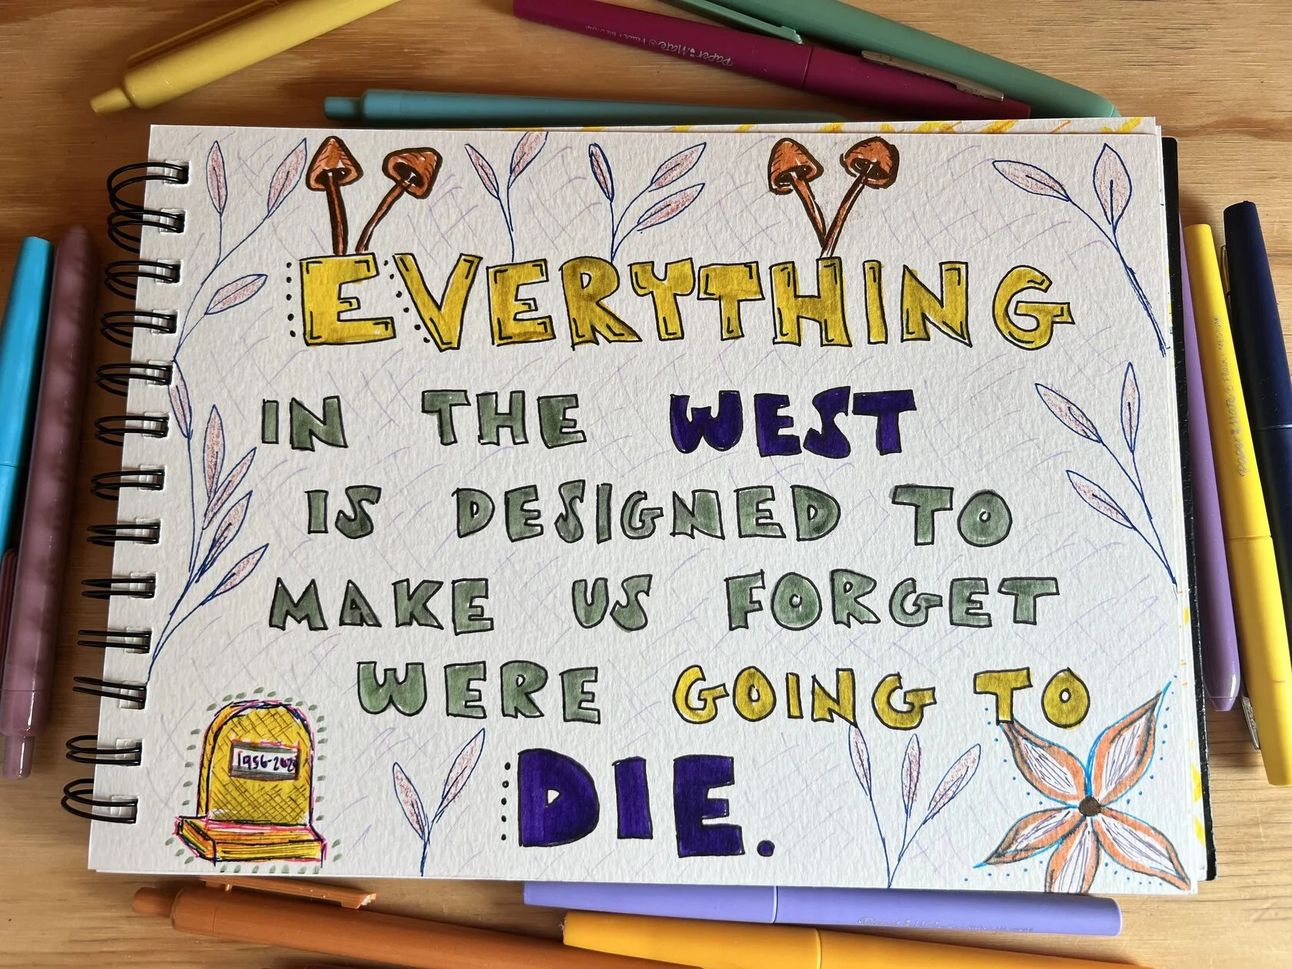 Paper Mate Flair
EVERYTHING
IN THE WEST
IS DESIGNED TO
MAKE US FORGET
WERE GOING TO
DIE.